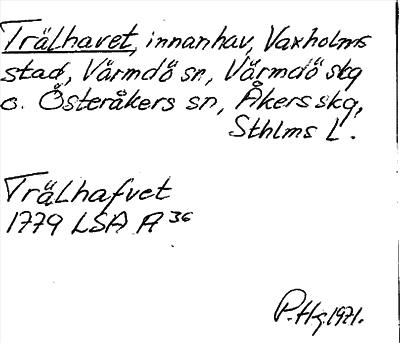 Trälhavet, innanhav, Vaxholms
stad, Värmdö sn, Värmdö skg
o. Österåkers sn, Åkers skg,
Sthlms L.
Trälhafvet
1779 LSA A 36
P.Hg. 1971.